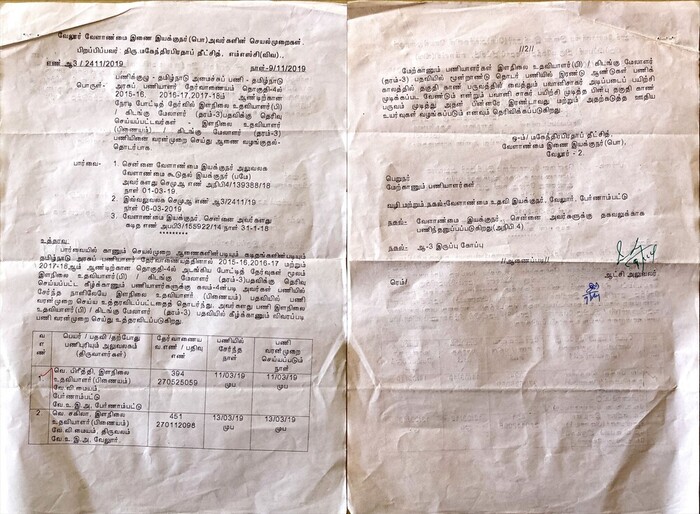 வேலூர் வேளாண்மை இணை இயக்குநர்(பொ)அவர்களின் செயல்முறைகள்.
பிறப்பிப்பவர்: திரு மகேந்திரபிரதாப் தீட்சித், எம்எஸ்சி(விவ).,
எண் ஆ3 / 2411/2019 நாள்-9/11/2019
பொருள்-
பணிக்குழு - தமிழ்நாடு அமைச்சுப் பணி - தமிழ்நாடு
அரசுப் பணியாளர் தேர்வாணையம் தொகுதி-4ல்
2015-16, 2016-17,2017-18ம் ஆண்டிற்கான
நேரடி போட்டித் தேர்வில் இளநிலை உதவியாளர்(பி)
/ கிடங்கு மேலாளர் (தரம்-3)பதவிக்கு தெரிவு
செய்யப்பட்டவர்கள் - இளநிலை உதவியாளர்
(பிணையம்) / கிடங்கு மேலாளர் (தரம்-3)
பணியினை வரன்முறை செய்து ஆணை வழங்குதல்-
தொடர்பாக.
பார்வை-
1. சென்னை வேளாண்மை இயக்குநர் அலுவலக
வேளாண்மை கூடுதல் இயக்குநர் (பமே)
அவர்களது செமுஆ எண் அநிபி4/139388/18
நாள் 01-03-19.
2. இவ்வலுவலக செமுஆ எண் ஆ3/2411/19
நாள் 06-03-2019
3. வேளாண்மை இயக்குநர், சென்னை அவர்களது
கடித எண் அபபி3/155922/14 நாள் 31-1-18
********
உத்தரவு
பார்வையில் காணும் செயல்முறை ஆணைகளின்படியும் கடிதங்களின்படியும்
தமிழ்நாடு அரசுப் பணியாளர் தேர்வாணையத்தினால் 2015-16,2016-17 மற்றும்
2017-18ஆம் ஆண்டிற்கான தொகுதி-4ல் அடங்கிய போட்டித் தேர்வுகள் மூலம்
இளநிலை உதவியாளர்(பி) / கிடங்கு மேலாளர் (தரம்-3)பதவிக்கு தெரிவு
செய்யப்பட்ட கீழ்க்காணும் பணியாளர்களுக்கு கலம்-4ன்படி அவர்கள் பணியில்
சேர்ந்த நாளிலேயே இளநிலை உதவியாளர் (பிணையம்) பதவியில் பணி
வரன்முறை செய்ய உத்தரவிடப்பட்டதைத் தொடர்ந்து, அவர்களது பணி இளநிலை
உதவியாளர்(பி) / கிடங்கு மேலாளர் (தரம்-3) பதவியில் கீழ்க்காணும் விவரப்படி
பணி வரன்முறை செய்து உத்தரவிடப்படுகிறது.
வ எண் பெயர் / பதவி /தற்போது பணிபுரியும் அலுவலகம் (திருவாளர்கள்) தேர்வாணைய வ.எண் / பதிவு எண் பணியில் சேர்ந்த நாள் பணி வரன்முறை செய்யப்படும் நாள்
1 வெ. பிரீத்தி, இளநிலை 394 11/03/19 11/03/19
உதவியாளர்(பிணையம்) 270525059 முப முப
வே.வி.மையம்,
பேர்ணாம்பட்டு
வே.உ.இ.அ, பேர்ணாம்பட்டு
2 வெ. சகிலா, இளநிலை 451 13/03/19 13/03/19
உதவியாளர்(பிணையம்) 270112098 முப முப
வே.வி மையம், திருவலம்
வே.உ.இ.அ, வேலூர்.
//2//
மேற்காணும் பணியாளர்கள் இளநிலை உதவியாளர்(பி) / கிடங்கு மேலாளர்
(தரம்-3) பதவியில் மூன்றாண்டு தொடர் பணியில் இரண்டு ஆண்டுகள் பணிக்
காலத்தில் தகுதி காண் பருவத்தின் வைத்தும் பவானிசாகர் அடிப்படைப் பயிற்சி
முடிக்கப்பட வேண்டும் எனவும் பவானி சாகர் பயிற்சி முடித்த பின்பு தகுதி காண்
பருவம் முடித்து அதன் பின்னரே இரண்டாவது மற்றும் அதற்கடுத்த ஊதிய
உயர்வுகள் வழங்கப்படும் எனவும் தெரிவிக்கப்படுகிறது.
ஒ-ம்/ மகேந்திரபிரதாப் தீட்சித்,
வேளாண்மை இணை இயக்குநர்(பொ),
வேலூர் - 2.
பெறுநர்
மேற்காணும் பணியாளர்கள்
வழி மற்றும் நகல்:வேளாண்மை உதவி இயக்குநர், வேலூர், பேர்ணாம்பட்டு
நகல்:- வேளாண்மை இயக்குநர், சென்னை அவர்களுக்கு தகவலுக்காக
பணிந்தனுப்பப்படுகிறது(அநிபி.4)
நகல்:- ஆ-3 இருப்பு கோப்பு
//ஆணைப்படி//
ஆட்சி அலுவலர்
ரெம்/